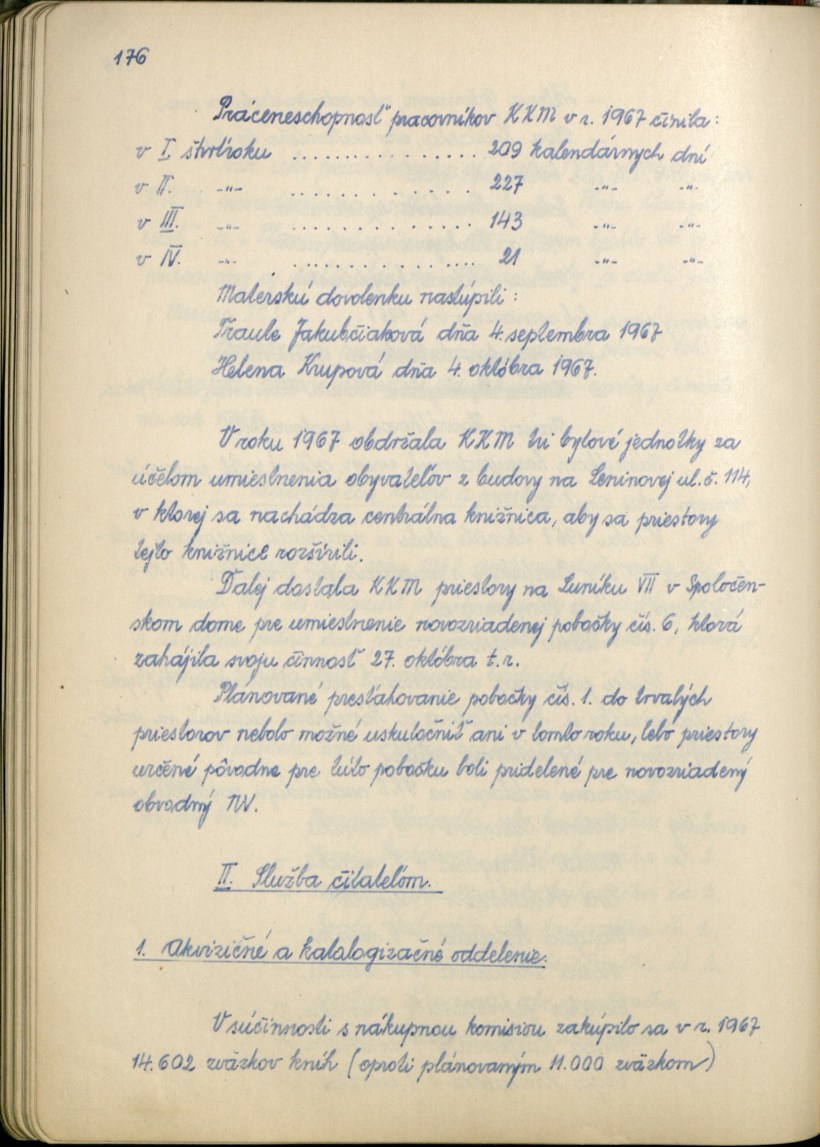 176
Práceneschopnosť pracovníkov KKM v r. 1967 činila:
v I. štvrťroku .................. 209 kalendárnych dní
v II. -„- .................. 227 -„- -„-
v III. -„- .................. 143 -„- -„-
v IV. -„- .................. 21 -„- -„-
Materskú dovolenku nastúpili:
Traute Jakubčiaková dňa 4. septembra 1967
Helena Krupová dňa 4. októbra 1967.
V roku 1967 obdržala KKM tri bytové jednotky za
účelom umiestnenia obyvateľov z budovy na Leninovej ul. č. 114,
v ktorej sa nachádza centrálna knižnica, aby sa priestory
tejto knižnice rozšírili.
Ďalej dostala KKM priestory na Luníku VII v Spoločen-
skom dome pre umiestnenie novozriadenej pobočky čís. 6, ktorá
zahájila svoju činnosť 27. októbra t.r.
Plánované presťahovanie pobočky čís. 1. do trvalých
priestorov nebolo možné uskutočniť ani v tomto roku, lebo priestory
určené pôvodne pre túto pobočku boli pridelené pre novozriadený
obvodný NV.
II. Služba čitateľom.
1. Akvizičné a katalogizačné oddelenie.
V súčinnosti s nákupnou komisiou zakúpilo sa v r. 1967
14.602 zväzkov kníh (oproti plánovaným 11.000 zväzkom)